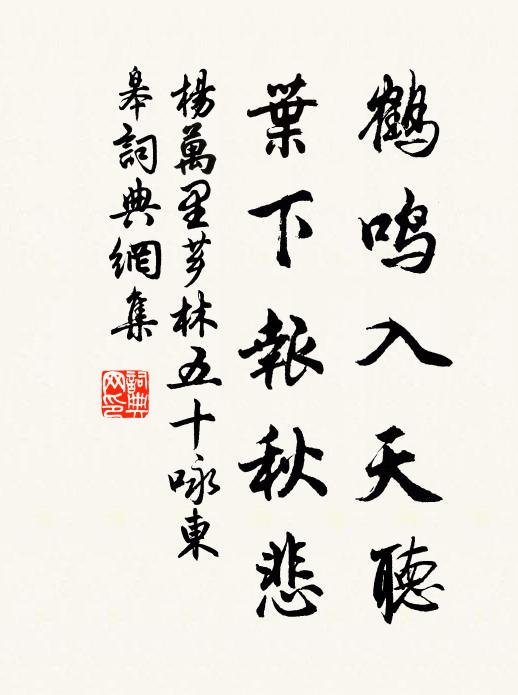 鶴鳴入天聽
葉下報秋悲
楊萬里薌林五十咏東
皋詞典網集
詞典网印